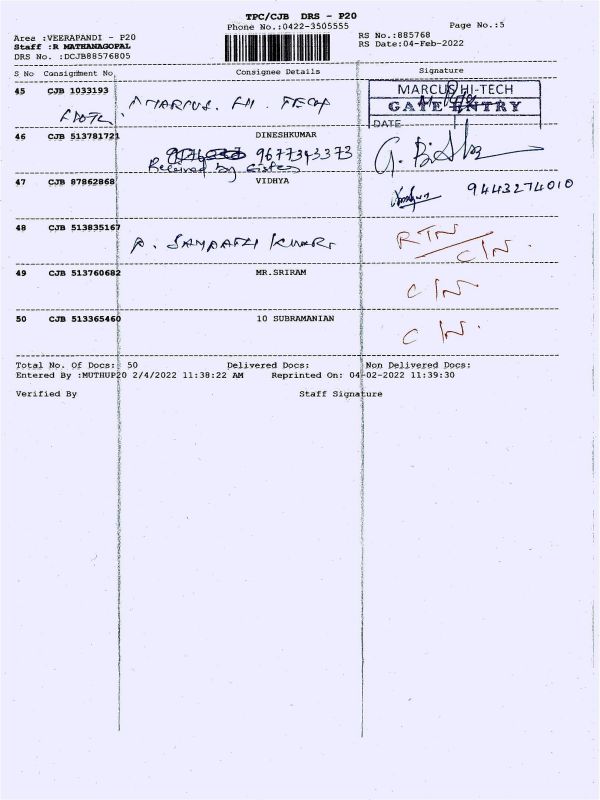 TPC/CJB DRS - P20
Phone No.:0422-3505555
Page No.:5
Area :VEERAPANDI - P20
Staff :R MATHANAGOPAL
DRS No. :DCJB88576805
RS No.:885768
RS Date:04-Feb-2022
S No Consignment No, Consignee Details Signature
45 CJB 1033193 MARCUS. HI. TECH
MARCUS HI-TECH
GATE ENTRY
DATE
46 CJB 513781721 DINESHKUMAR
9677343373
Received by Sister
47 CJB 87862868 VIDHYA
9443274010
48 CJB 513835167 P. SAMPATH KUMAR
RTN
C/N.
49 CJB 513760682 MR.SRIRAM
C/N
50 CJB 513365460 10 SUBRAMANIAN
C/N.
Total No. Of Docs: 50 Delivered Docs: Non Delivered Docs:
Entered By :MUTHUP20 2/4/2022 11:38:22 AM Reprinted On: 04-02-2022 11:39:30
Verified By Staff Signature